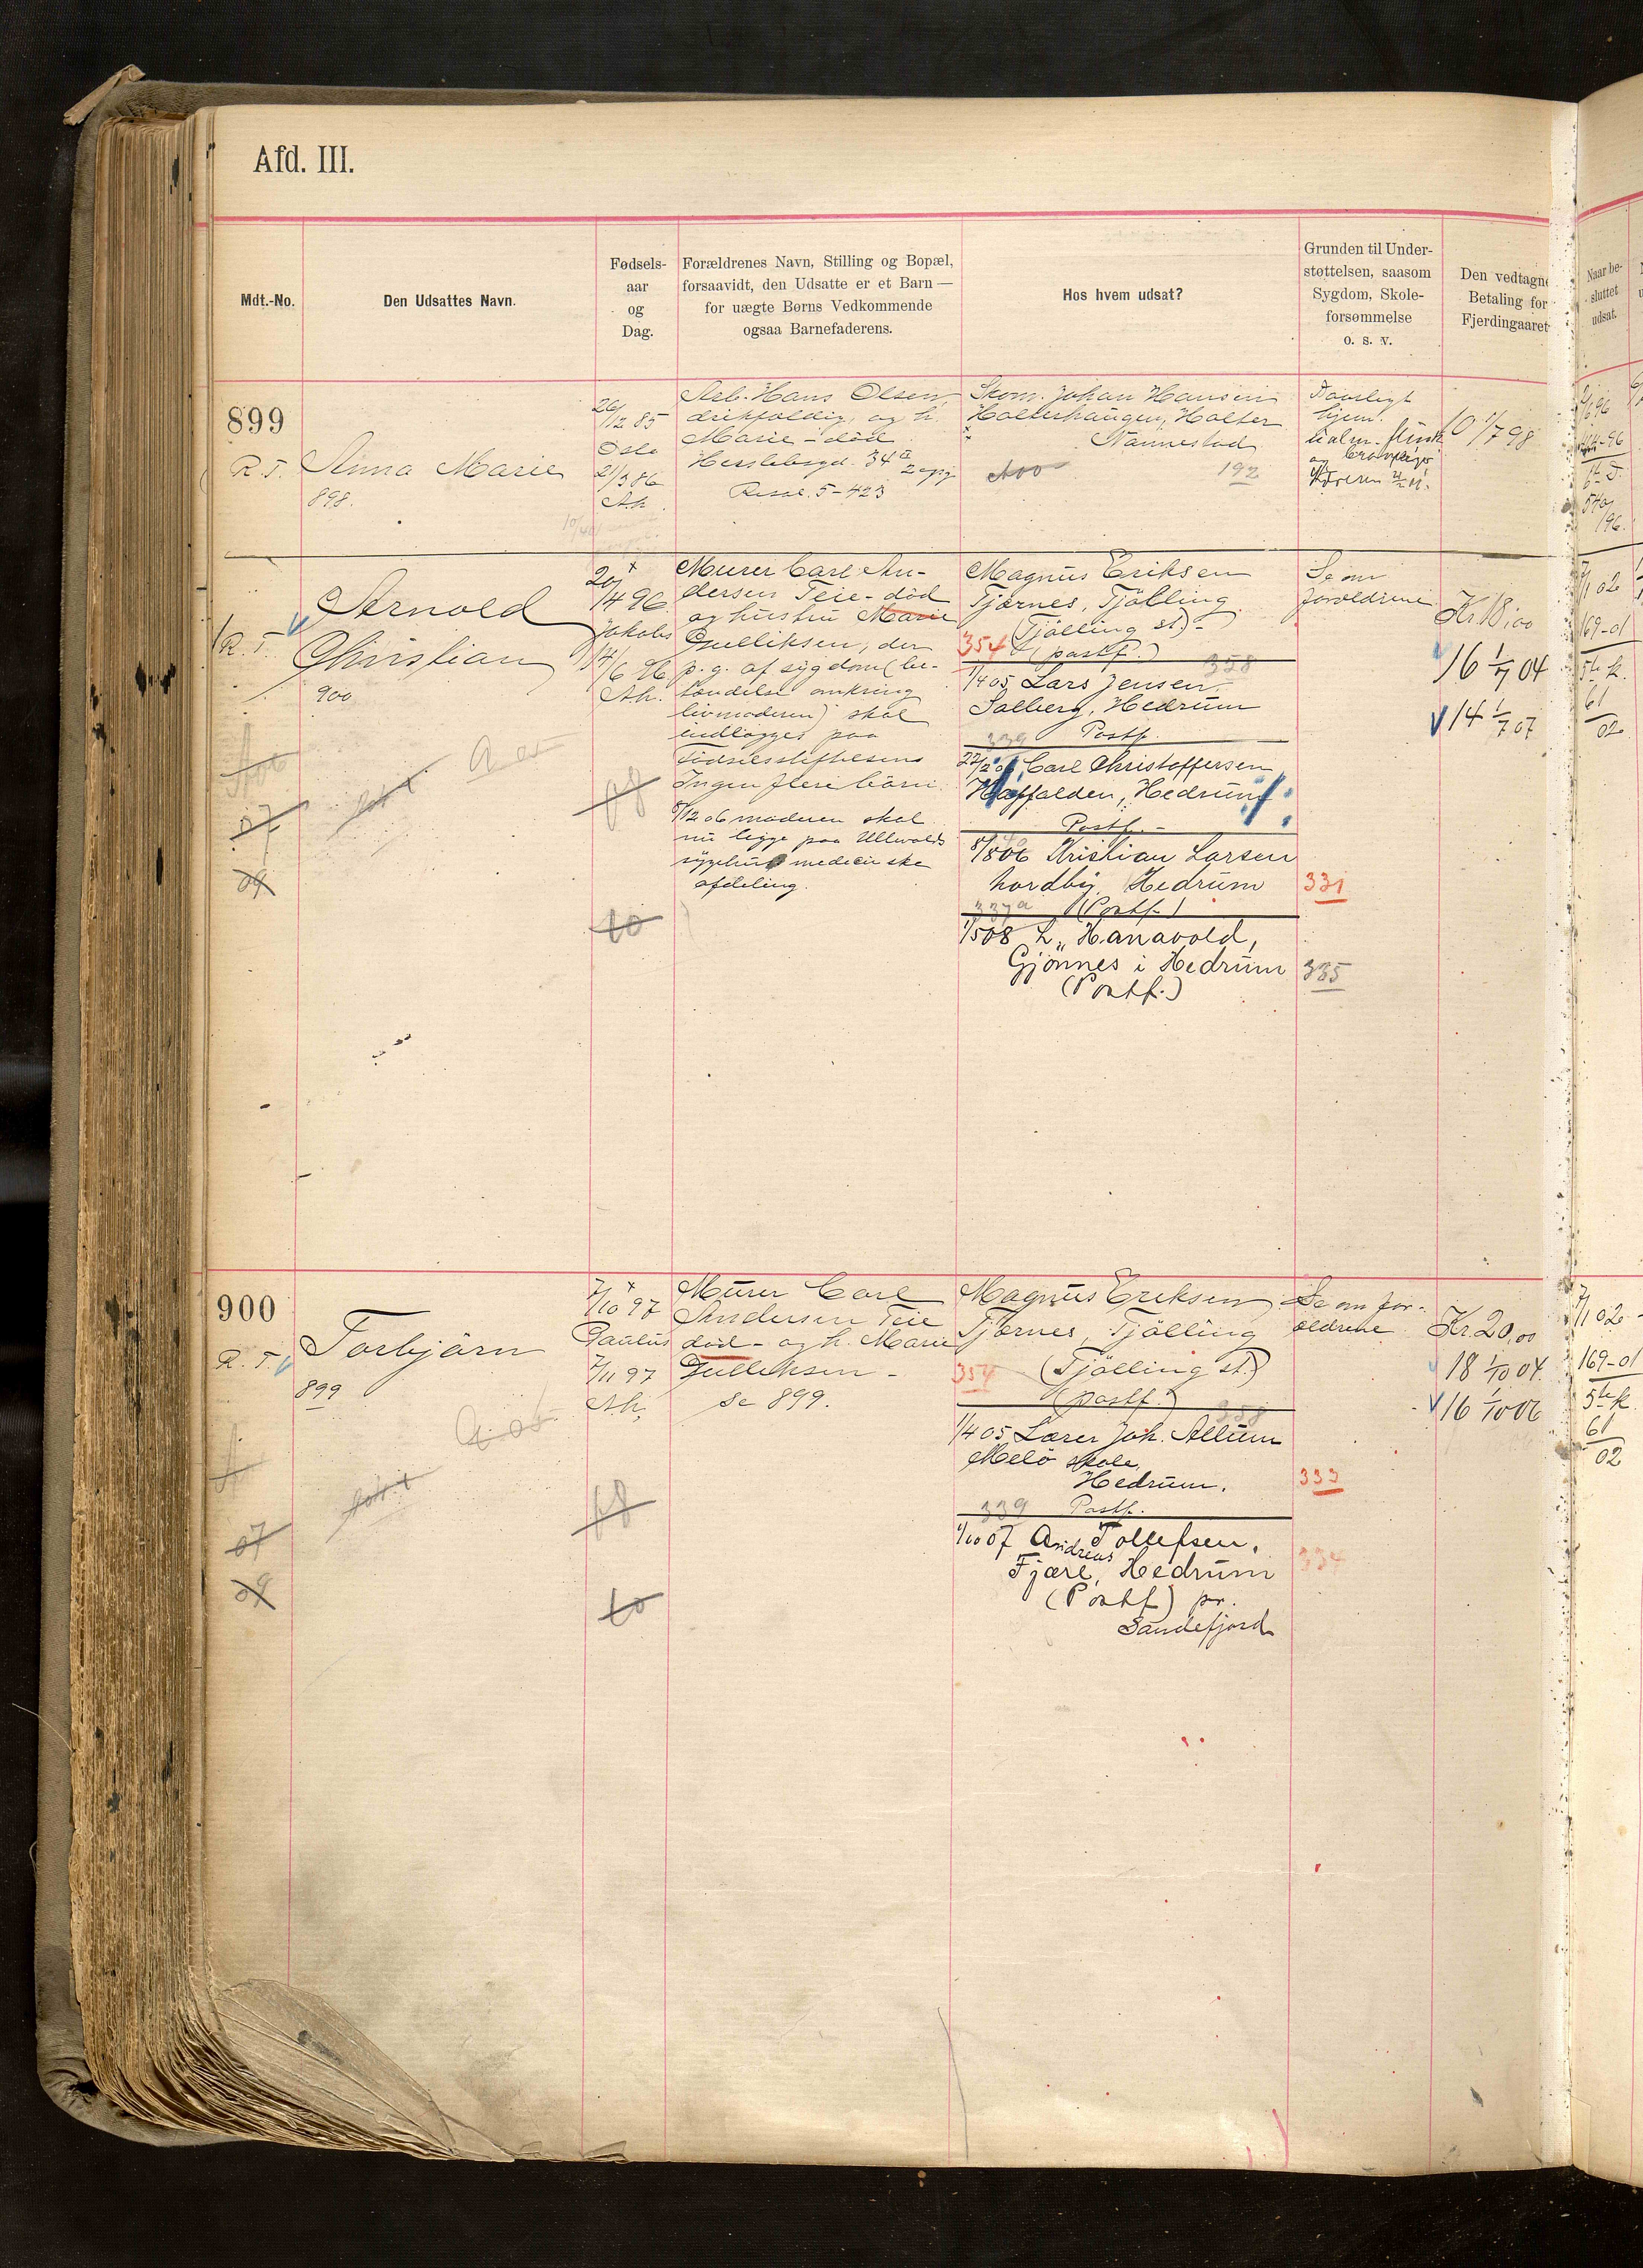 Afd. III.
Mdt.-No.
Den Udsattes Navn.
Fødsels-
aar
og
Dag.
Forældrenes Navn, Stilling og Bopæl,
forsaavidt, den Udsatte er et Barn —
for uægte Børns Vedkommende
ogsaa Barnefaderens.
Hos hvem udsat?
Grunden til Under-
støttelsen, saasom
Sygdom, Skole-
forsømmelse
o. s. v.
Den vedtagne
Betaling for
Fjerdingaaret
Naar be-
sluttet
udsat.
899
R. T. Anna Marie
898.
26/12 85
Oslo
21/3 86
Ah.
Arb. Hans Olsen,
drikfældig, og h.
Marie - død
34 II
Resol. 5-423
Skom. Johan Hansen
Holterhaugen, Holter
Nannestad
192
Daarligt
hjem.
10 1/7 98
R. T. Arnold
Christian
900
20/4 96
Jakobs
14/6 96
Ah.
Murer Carl An-
dersen Teie - død
og hustru Marie
Gulliksen, der
p. g. af sygdom (be-
tændelse omkring
livmoderen) skal
indlægges paa
Fødselsstiftelsen
Ingen flere børn.
8/12 06 moderen skal
nu ligge paa Ullevolds
sygehus medicinske
afdeling.
Magnus Eriksen
Tjørnes, Tjølling
(Tjølling st.) -
354 (postf.)
358
1/4 05 Lars Jensen
Solberg, Hedrum
339 Postf.
22/2 06, Carl Christoffersen
Haffalden, Hedrum
Postf. -
8/8 06 Kristian Larsen
Nordby, Hedrum
331
337a (Postf.)
1/5 08 L. Hanavold,
Gjønnes i Hedrum
335
(Postf.)
Se om
forældrene
Kr. 18,00
16 1/7 04
14 1/7 07
7/1 02
169-01
5te k.
61
02
07
09
08
10
900
R. T. Torbjørn
899
7/10 97
Paulus
7/11 97
Ah.
Murer Carl
Andersen Teie
død - og h. Marie
Gulliksen -
Se 899.
Magnus Eriksen
Tjørnes, Tjølling
354 (Tjølling st.)
(postf.)
358
1/4 05 Lærer Joh. Allum
Melø skole,
Hedrum.
333
339 Postf.
1/10 07 Andreas Tollefsen,
Fjære, Hedrum
334
(Postf) pr.
Sandefjord
Se om for-
ældrene
Kr. 20,00
18 1/10 04.
16 1/10 06
7/1 02
169-01
5te k
61
02
07
09
08
10